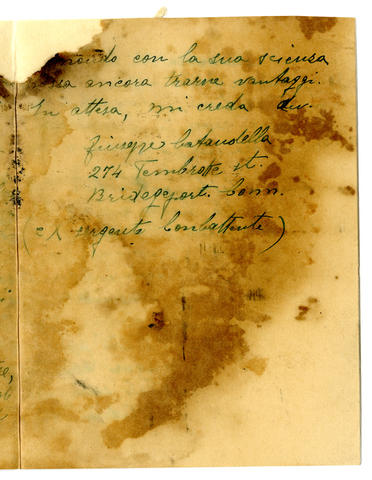 mondo con la sua scienza
possa ancora trarne vantaggi.
In attesa, mi creda dev.
Giuseppe
274 Pembroke st.
Bridgeport. Conn.
(ex sergente Combattente)